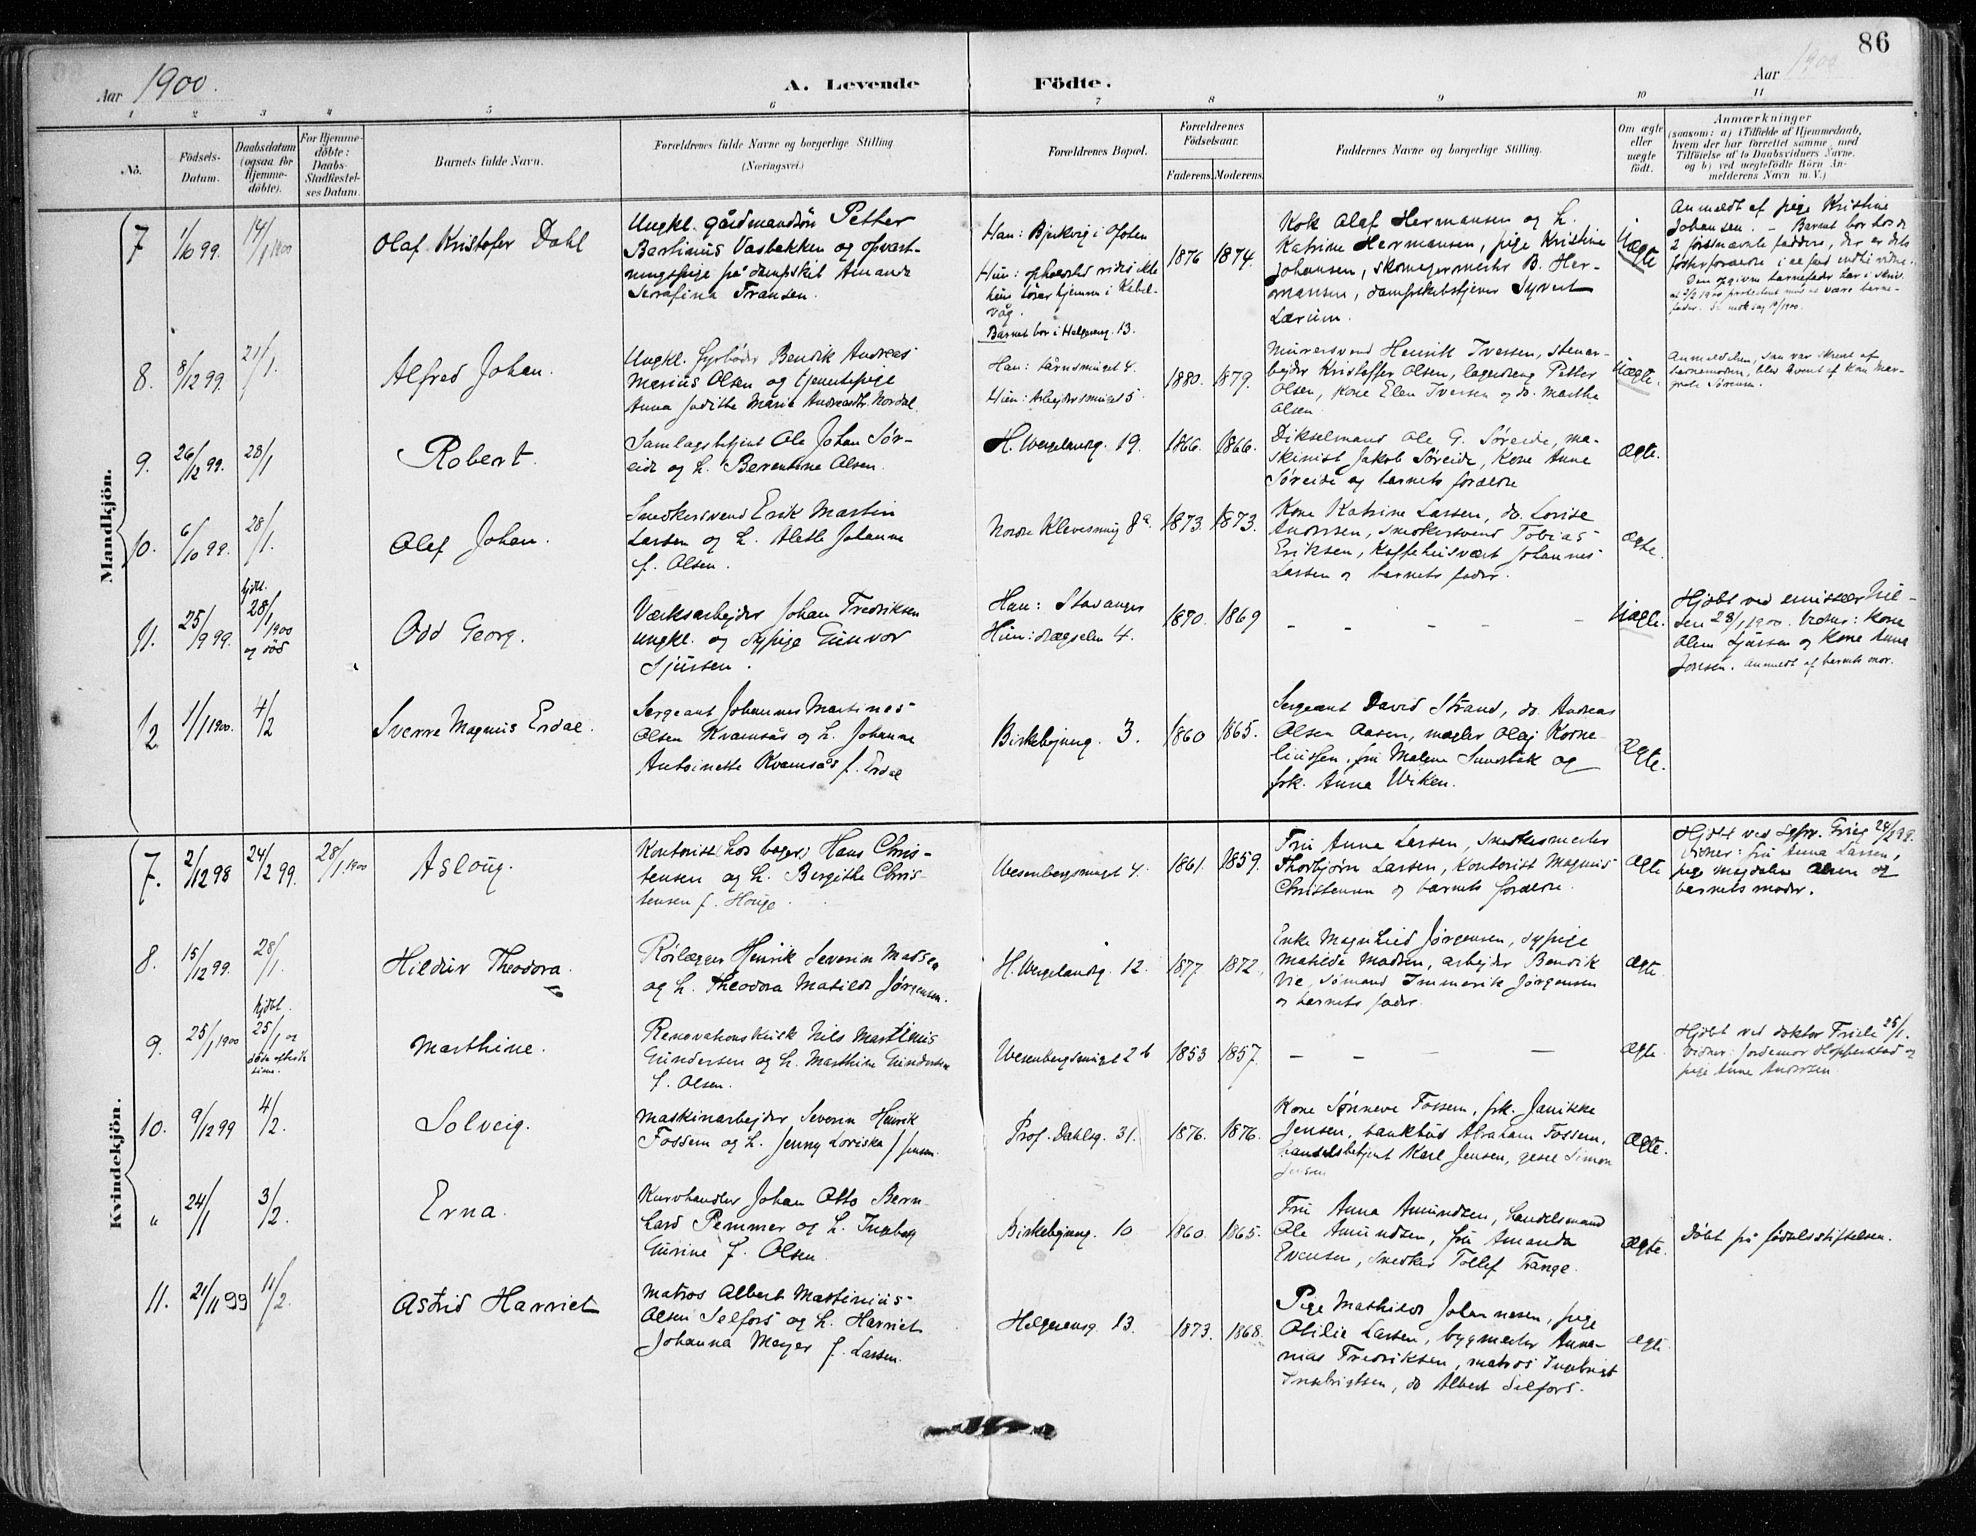 86
Aar 1900.
A. Levende Födte.
Aar 1900
1 2 3 4 5 6 7 8 9 10 11
No.
Födsels-Datum.
Daabsdatum (ogsaa for Hjemme-döbte).
For Hjemme-döbte: Daabs-Stadfæstel-ses Datum.
Barnets fulde Navn.
Forældrenes fulde Navne og borgerlige Stilling (Næringsvei.)
Forældrenes Bopæl.
Forældrenes Födselsaar.
Faderens. Moderens.
Faddernes Navne og borgerlige Stilling.
Om ægte eller uægte födt.
Anmærkninger
(saasom: a) i Tilfælde af Hjemmedaab,
hvem der har forrettet samme, med
Tilföielse af to Daabsvidners Navne,
og b) ved uægtefödte Börn An-
melderens Navn m. V.)
Mandkjön.
7
1/10 99.
14/1 1900
Olaf Kristofer Dahl
Ungkl. gårdmandssön Petter
Bartinius Vasbakken og opvart-
ningspige på dampskib Amanda
Serafina Fransen.
Han: Bjerkvig i Ofoten
Hun: opholdssted vides ikke
hun hører hjemme i Kabel-
våg.
Barnet bor i Helgeseng. 13.
1876
1874.
Kok Olaf Hermansen og h.
Katrine Hermansen, pige Kristine
Johansen, skomagermester B. Her-
mansen, dampskibstjener Syvert
Lærum.
Uægte
Anmeldt af pige Kristine
Johansen. - Barnet bor hos de
2 förstnævnte faddere, der er dets
fosterforældre
8.
8/12 99.
21/1.
Alfred Johan.
Ungkl. fyrbøder Bendik Andreas
Marius Olsen og tjenestepige
Anna Judithe Marie Andreasdtr. Nordal
Han: tårnsmuget 4.
Hun: Arbejdersmuget 5.
1880.
1879.
Murersvend Henrik Iversen, stenar-
bejder Kristoffer Olsen, lagerdreng Petter
Olsen, kone Elen Iversen og do. Marthe
Olsen.
Uægte.
Anmeldelsen, som var skrevet af
barnemoderen, blev levert af Kone Mar-
grete Sørensen.
9.
26/12 99.
28/1
Robert.
Samlagsbetjent Ole Johan Sør-
eide og h. Berentine Olsen.
H. Wergelandsg. 19.
1866.
1866.
Dikselmand Ole G. Søreide, ma-
skinist Jakob Søreide, Kone Anne
Søreide og barnets forældre
Ægte.
10.
6/10 99.
28/1.
Olaf Johan.
Snedkersvend Erik Martin
Larsen og h. Alethe Johanne
f. Olsen.
Nordre Klevesmug 8a.
1873.
1873.
Kone Katrine Larsen, do. Lovise
Andersen, snedkersvend Tobias
Eriksen, Kaffehusvært Johannes
Larsen og barnets fader.
Ægte.
11.
25/9 99.
hjdt. 28/1 1900 og död
Odd Georg.
Værksarbejder Johan Fredriksen
ungkl. og sypige Gunvor
Sjursen.
Han: Stavanger
Hun: Drægselen 4.
1870.
1869
- - - - -
Uægte.
Hjdbt ved emissær Nil-
sen 28/1 1900. Vidner: Kone
Olene Sjursen og Kone Anna
Jonsen. Anmeldt af barnets mor.
12
1/1 1900.
4/2
Sverre Magnus Erdal.
Sergeant Johannes Martinus
Olsen Kvamsås og h. Johanne
Antoinette Kvamsås f. Erdal
Birkebejnerg. 3.
1860
1865.
Sergeant David Strand, do. Andreas
Olsen Aasen, mægler Olaf Korne-
liussen, fru Malene Sundbak og
frk. Anna Wiken.
Ægte.
Kvindekjön.
7.
2/12 98
24/2 99.
28/1 1900
Aslaug.
Kontorist (hos bager) Hans Chris-
tensen og h. Bergithe Chris-
tensen f. Hauge.
Wesenbergsmuget 4.
1861.
1859.
Fru Anna Larsen, snedkermester
Thorbjørn Larsen, kontorist Magnus
Christensen og barnets forældre.
Ægte
Hjdbt ved sgpr. Grieg 24/2 99.
Vidner: fru Anna Larsen,
pige Magdalene Olsen og
barnets moder.
8.
15/12 99.
28/1.
Hildur Theodora.
Rørlægger Henrik Severin Madsen
og h. Theodora Matilde Jørgensen.
H. Wergelandsg. 12.
1877.
1872.
Enke Magnhild Jørgensen, sypige
Matilde Madsen, arbejder Bendik
Vie, sømand Immerik Jørgensen
og barnets fader.
Ægte.
9.
25/1 1900
hjdbt. 25/1 og döde efter få timer
Marthine.
Renovationskusk Nils Martinus
Gundersen og h. Marthine Gundersen
f. Olsen.
Wesenbergsmuget 2b
1853
1857.
- - - -
Ægte.
Hjdbt ved doktor Friele 25/1.
Vidner: jordemor Hopperstad og
pige Anne Andersen.
10.
9/12 99
4/2.
Solveig.
Maskinarbejder Severin Henrik
Fossem og h. Jenny Loviska f. Jensen
Prof. Dahlsg. 31.
1876.
1876.
Kone Sønneve Fossem, frk. Janikke
Jensen, bankbud Abraham Fossem,
handelsbetjent Karl Jensen, gesel Simon
Jensen
Ægte.
"
24/1
3/2.
Erna.
Kurvhandler Johan Otto Bern-
hard Pemmer og h. Ingeborg
Gurine f. Olsen
Birkebejnerg. 10
1860.
1865.
Fru Anna Amundsen, handelsmand
Ole Amundsen, fru Amanda
Evensen, snedker Tollef Trange.
Ægte.
Døbt på fødselsstiftelsen.
11.
21/11 99
11/2.
Astrid Harriet
Matros Albert Martinius
Olsen Selfors og h. Harriet
Johanna Meyer f. Larsen.
Helgesensg. 13.
1873.
1868.
Pige Mathilde Johannesen, pige
Otilie Larsen, bygmester Anna-
nias Fredriksen, matros Ingebrigt
Ingebrigtsen, do Albert Selfors.
Ægte